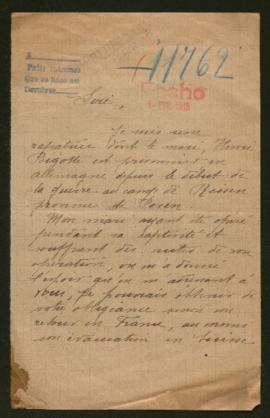 A
Pedir informes
Que se hace así
Devolver
11762
Hecho
1918
Sire,
Je suis une
rapatriée dont le mari, Henri
est prisonnier en
Allemagne depuis le début de
la guerre au camp de
province de Posen.
Mon mari ayant été opéré
pendant sa captivité et
souffrant des suites de son
opération, on m'a donné
l'espoir qu'en m'adressant à
vous, je pourrais obtenir de
votre obligeance sinon son
retour en France, au moins
son évacuation en Suisse